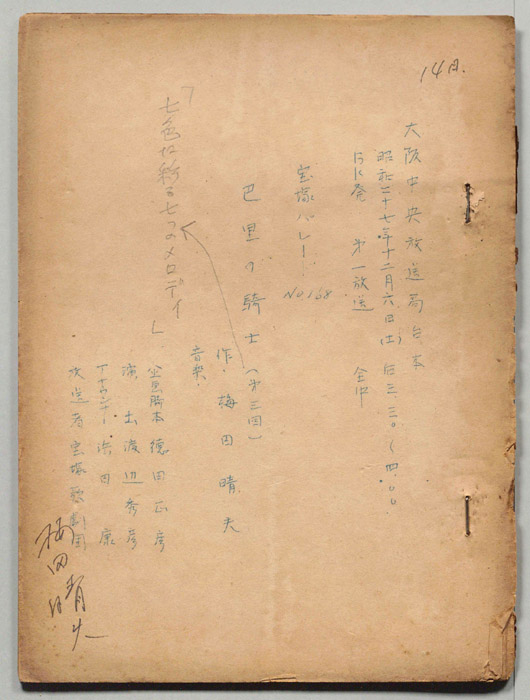 14日.
大阪中央放送局台本
昭和二十七年十二月六日(土)后三.三〇〜四.〇〇.
BK発 第一放送 全中
宝塚バレー
No.168
巴里の騎士(第三回)
作.梅田晴夫
「七色に彩る七つのメロディ」
音楽.
企画脚本 徳田正彦
演出 渡辺秀彦
アナウンサー 浜田 康
放送者 宝塚歌劇団
梅田晴夫